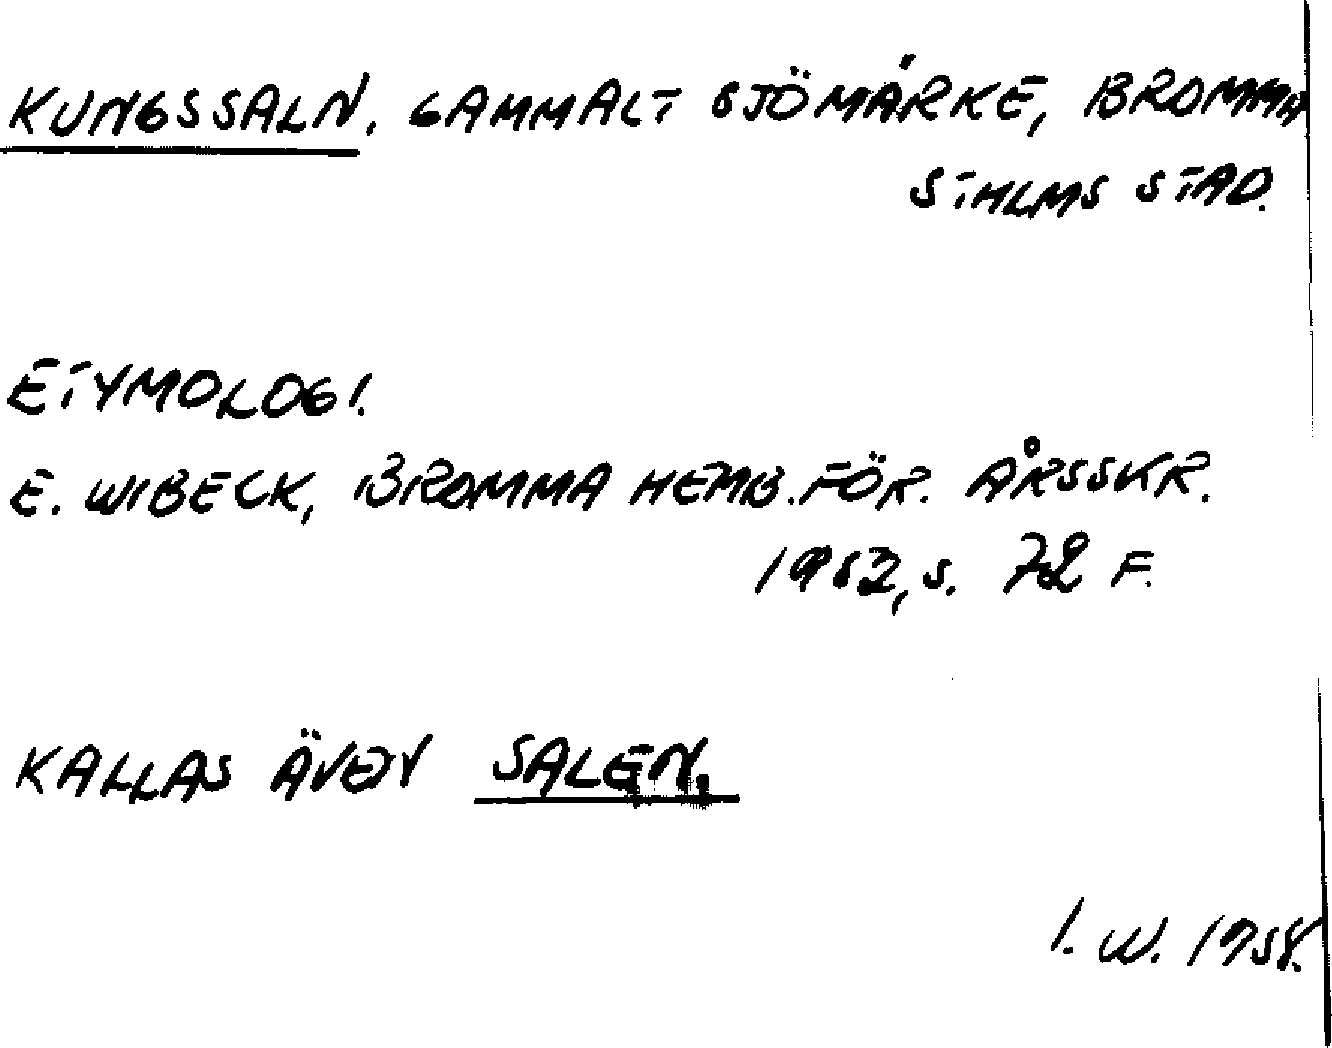 KUNGSSALN. GAMMALT SJÖMÄRKE, BROMMA
STHLMS STAD.
ETYMOLOGI.
E. WIBECK, BROMMA HEMB.FÖR. ÅRSSKR.
1952, S. 72 F.
KALLAS ÄVEN SALEN.
I. W. 1958.